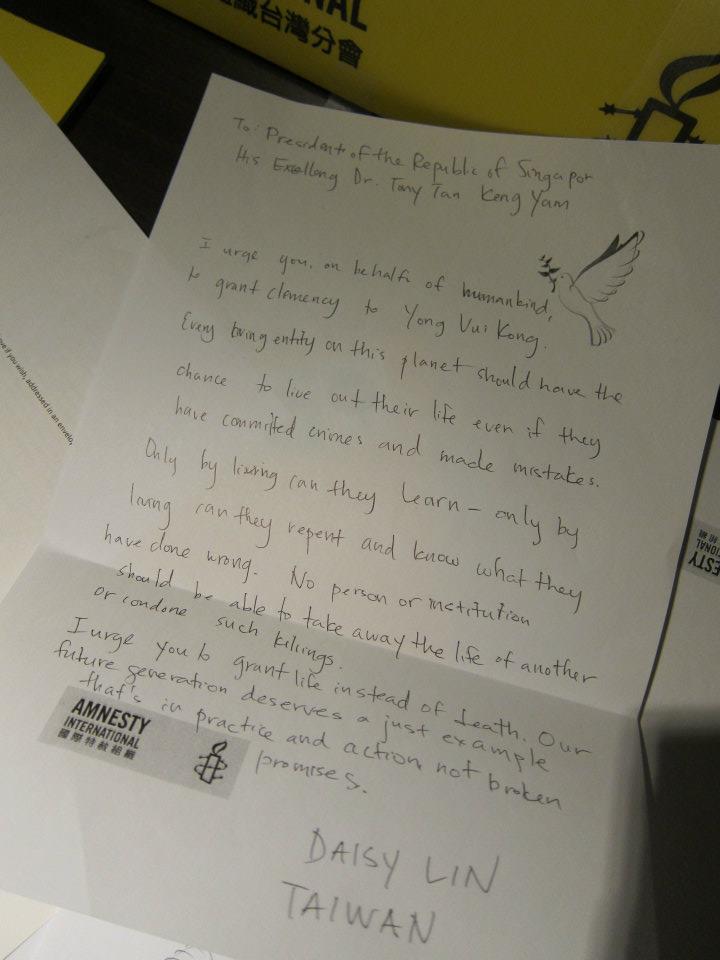 NAL
織台灣分會
To: President of the Republic of Singapor
His Excelleng Dr. Tony Tan Keng Yam
I urge you, on behalf of humankind,
to grant clemency to Yong Vui Kong.
Every living entity on this planet should have the
chance to live out their life even if they
have committed crimes and made mistakes.
Only by living can they learn – only by
living can they repent and know what they
have done wrong. No person or institution
should be able to take away the life of another
or condone such killings.
I urge you to grant life instead of death. Our
future generation deserves a just example
that's in practice and action, not broken
promises.
AMNESTY
INTERNATIONAL
國際特赦組織
DAISY LIN
TAIWAN
ove if you wish, addressed in an envelo
NESTY
TIONAL